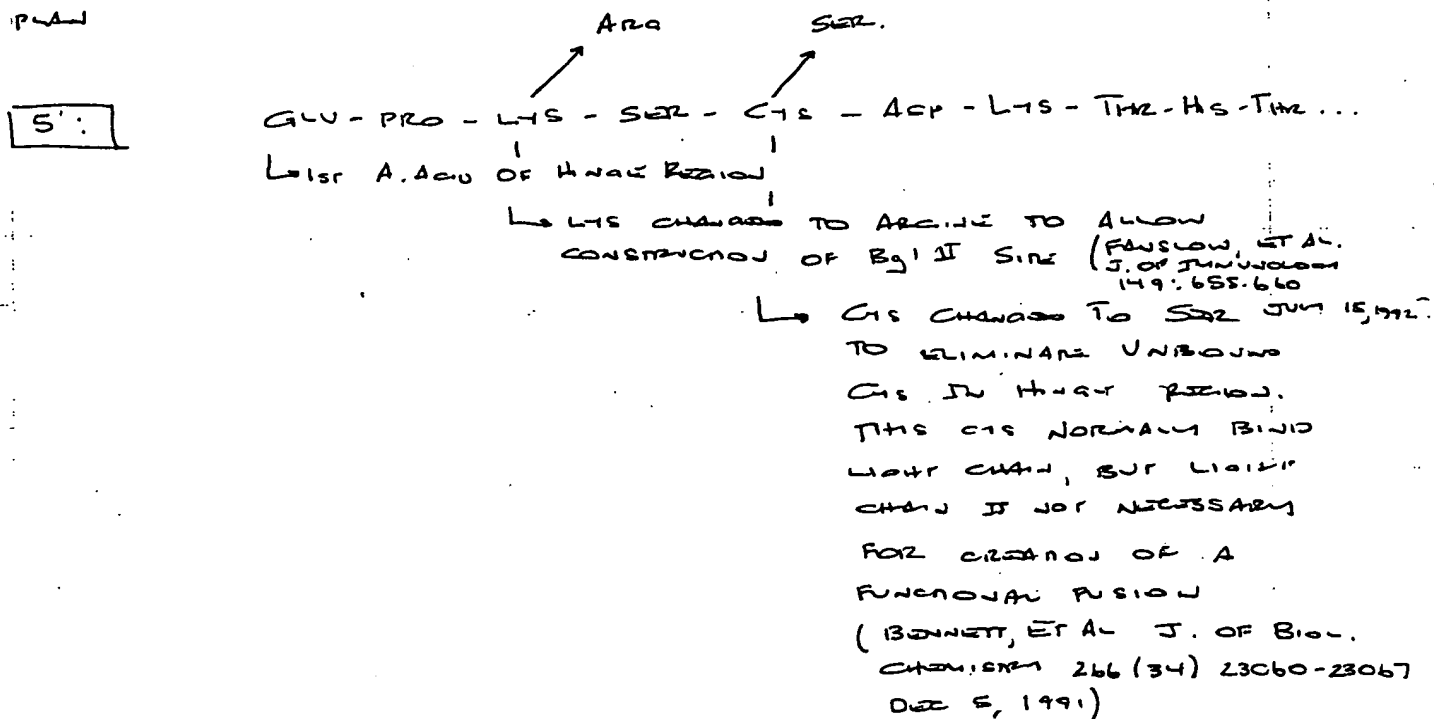 PLAN
ARG SER.
5': GLU - PRO - LYS - SER - CYS - ASP - LYS - THR - HIS - THR ...
1ST A. ACID OF HINGE REGION
LYS CHANGED TO ARGINE TO ALLOW
CONSTRUCTION OF Bgl II SITE (FANSLOW, ET AL.
J. OF IMMUNOLOGY
149: 655-660
CYS CHANGED TO SER JULY 15, 1992
TO ELIMINATE UNBOUND
CYS IN HINGE REGION.
THIS CYS NORMALLY BIND
LIGHT CHAIN, BUT LIGHT
CHAIN IS NOT NECESSARY
FOR CREATION OF A
FUNCTIONAL FUSION
(BENNETT, ET AL J. OF BIOL.
CHEMISTRY 266 (34) 23060-23067
DEC 5, 1991)